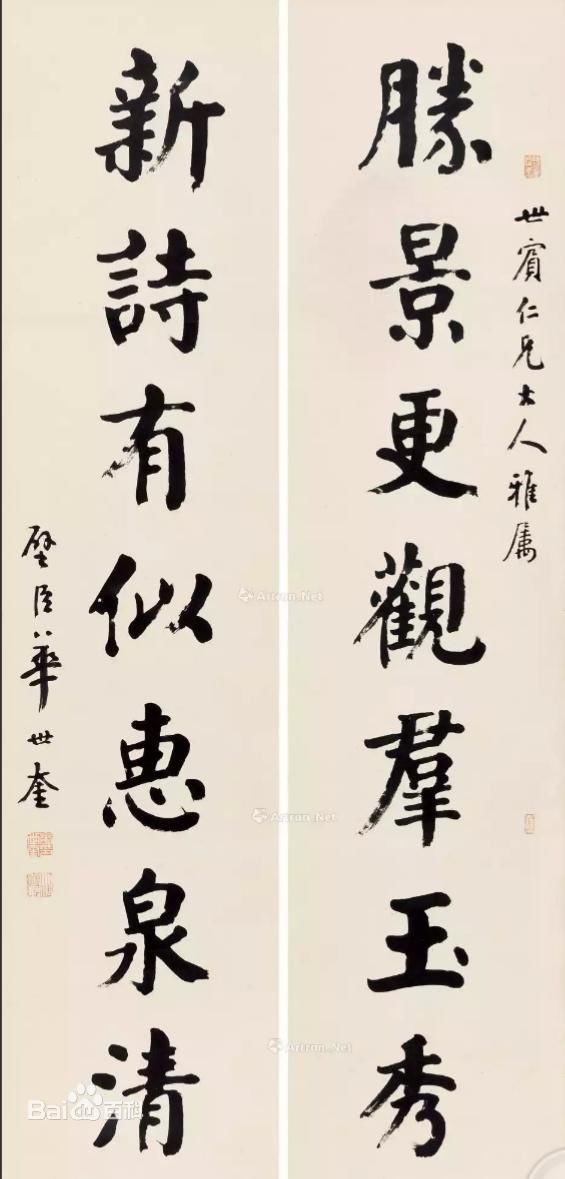 世賓仁兄大人雅属
勝景更觀羣玉秀
新詩有似惠泉清
璧臣華世奎
Artron.Net
Artron.Net
Artron.Net
Artron.Net
Baidu百科